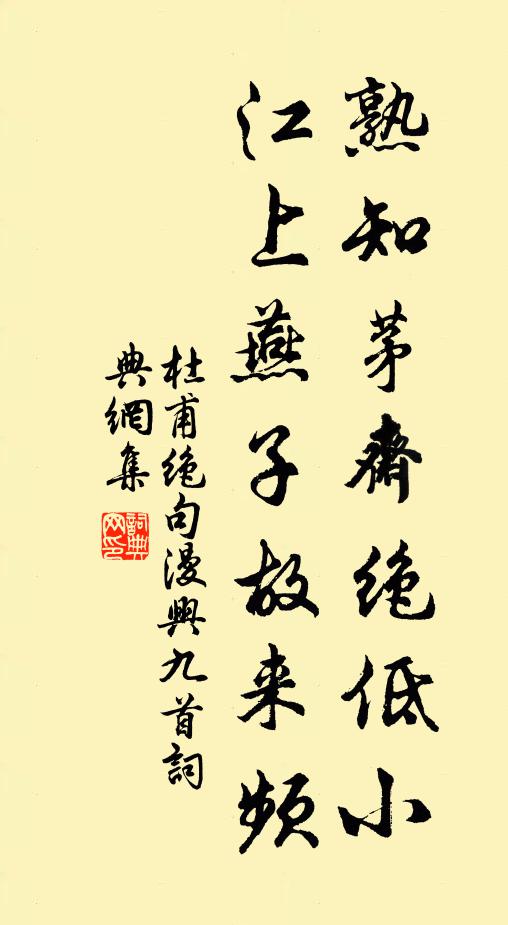 熟知茅齋绝低小
江上燕子故来频
杜甫绝句漫興九首詞
典網集
詞典
网印